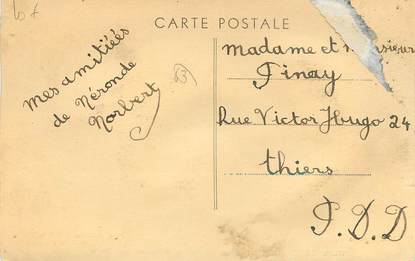 CARTE POSTALE
Mes amitiéés
de Néronde
Norbert
madame et monsieur
Finay
Rue Victor Hugo 24
thiers
P.D.D